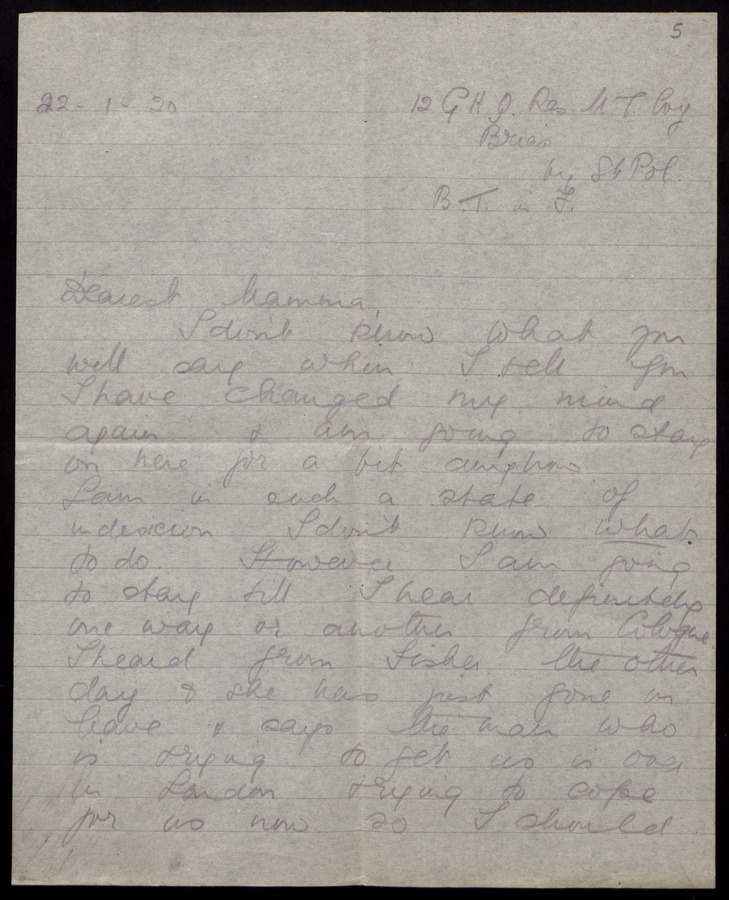 5
22-1-20 12 G.H.Q. Res M.T. Coy
Brias
by St Pol.
B.T. in F.
Dearest Mamma,
I don't know what you
will say when I tell you
I have changed my mind
again & am going to stay
on here for a bit anyhow
I am in such a state of
indecision I don't know what
to do. However I am going
to stay till I hear definitely
one way or another from Cologne
I heard from Fisher the other
day & she has just gone on
leave & says the man who
is trying to get us is over
in London trying to cope
for us now so I should